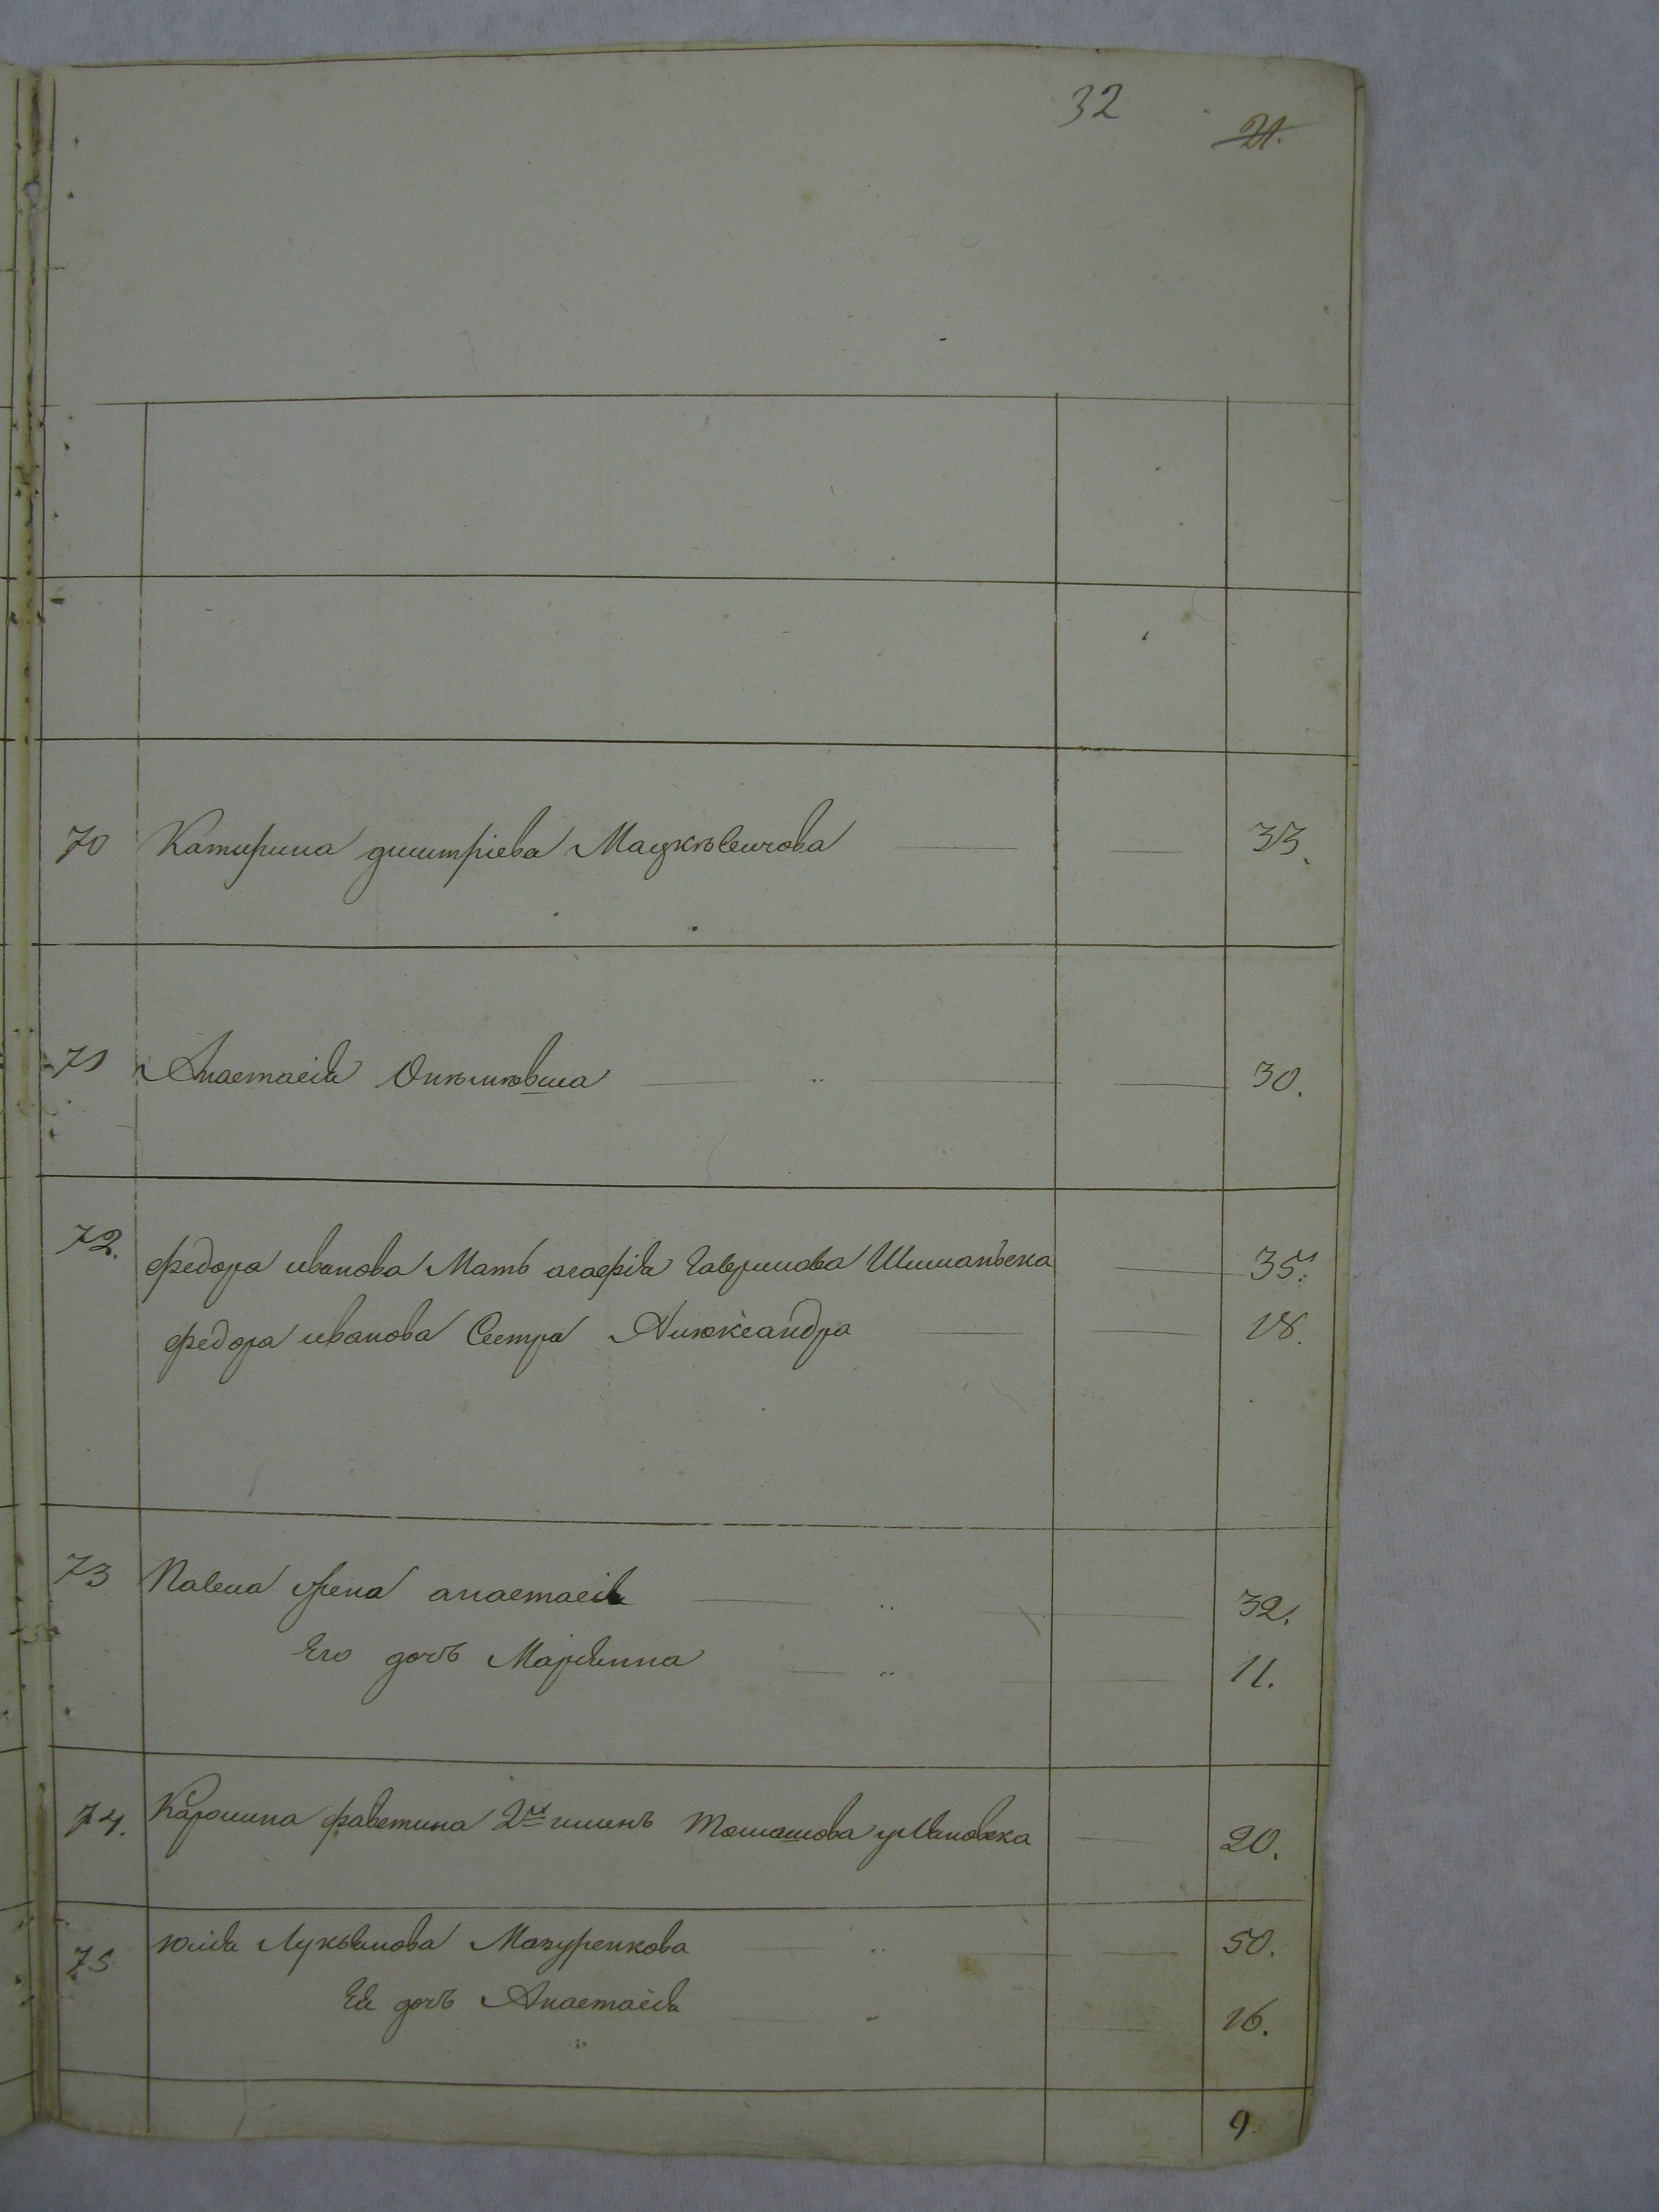 32
21.
70 Катирина дмитріева Мацкѣвичова 33.
71 Анастасія 30.
72. федора иванова Мать агафія Гаврилова 35.
федора иванова Сестра Алѣксандра 18.
73 Павла жена анастасія 32.
Его дочь Маріянна 11.
74. Каролина 2й Томашова 20.
75 юлія Лукьянова Мазуренкова 50.
Ея дочь Анастасія 16.
9.